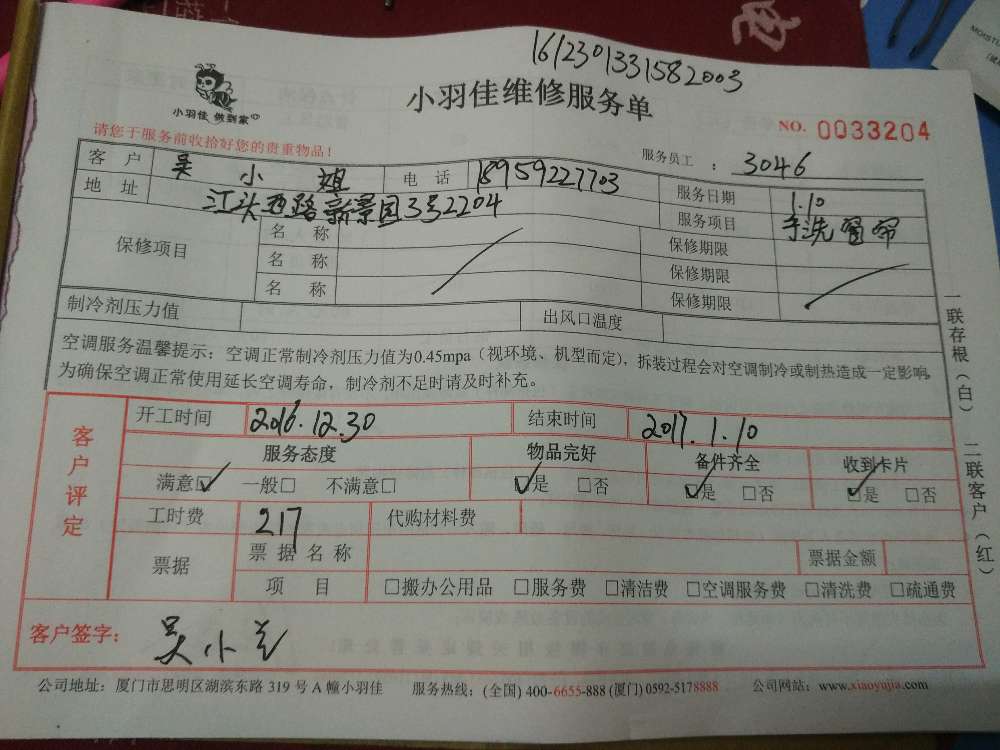 1612301331582003
小羽佳 做到家
小羽佳维修服务单
NO. 0033204
请您于服务前收拾好您的贵重物品！
服务员工 ： 3046
客 户 吴小姐 电 话 18959227703 服务日期 1.10
地 址 江头西路新景园3号2204 服务项目 手洗窗帘
保修项目 名 称 保修期限
名 称 保修期限
名 称 保修期限
制冷剂压力值 出风口温度
空调服务温馨提示：空调正常制冷剂压力值为0.45mpa（视环境、机型而定），拆装过程会对空调制冷或制热造成一定影响，
为确保空调正常使用延长空调寿命，制冷剂不足时请及时补充。
客户评定
开工时间 2016.12.30 结束时间 2017.1.10
服务态度 物品完好 备件齐全 收到卡片
满意☑ 一般□ 不满意□ ☑是 □否 ☑是 □否 ☑是 □否
工时费 217 代购材料费
票据 票 据 名 称 票据金额
项 目 □搬办公用品 □服务费 □清洁费 □空调服务费 □清洗费 □疏通费
客户签字： 吴小兰
公司地址：厦门市思明区湖滨东路 319 号 A 幢小羽佳 服务热线：(全国) 400-6655-888 (厦门) 0592-5178888 公司网站：www.xiaoyujia.com
一联存根（白） 二联客户（红）